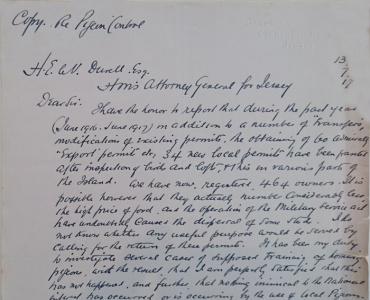 Copy. Re Pigeon Control
13/7/17
H.E. Le V. Durell Esq.
H.M's Attorney General for Jersey
Dear Sir. I have the honor to report that during the past year
(June 1916. June 1917) in addition to a number of "Transfers,
modification of existing permits, the obtaining of Admiralty
"Export" permits etc, 34 new local permits have been granted
after inspection of birds and lofts, this in various parts of
the Island. We have now, registered, 464 owners. It is
possible however that they actually number considerably less
the high price of food, and the operation of the Military Service act
has undoubtedly caused the dispersal of some studs. I do
not know whether any useful purpose would be served by
calling for the return of these permits. It has been my duty
to investigate several cases of supposed training of homing
pigeons, with the result, that I am perfectly satisfied that this
has not happened, and further, that nothing inimical to the National
has occurred or is occurring by the use of local Pigeons